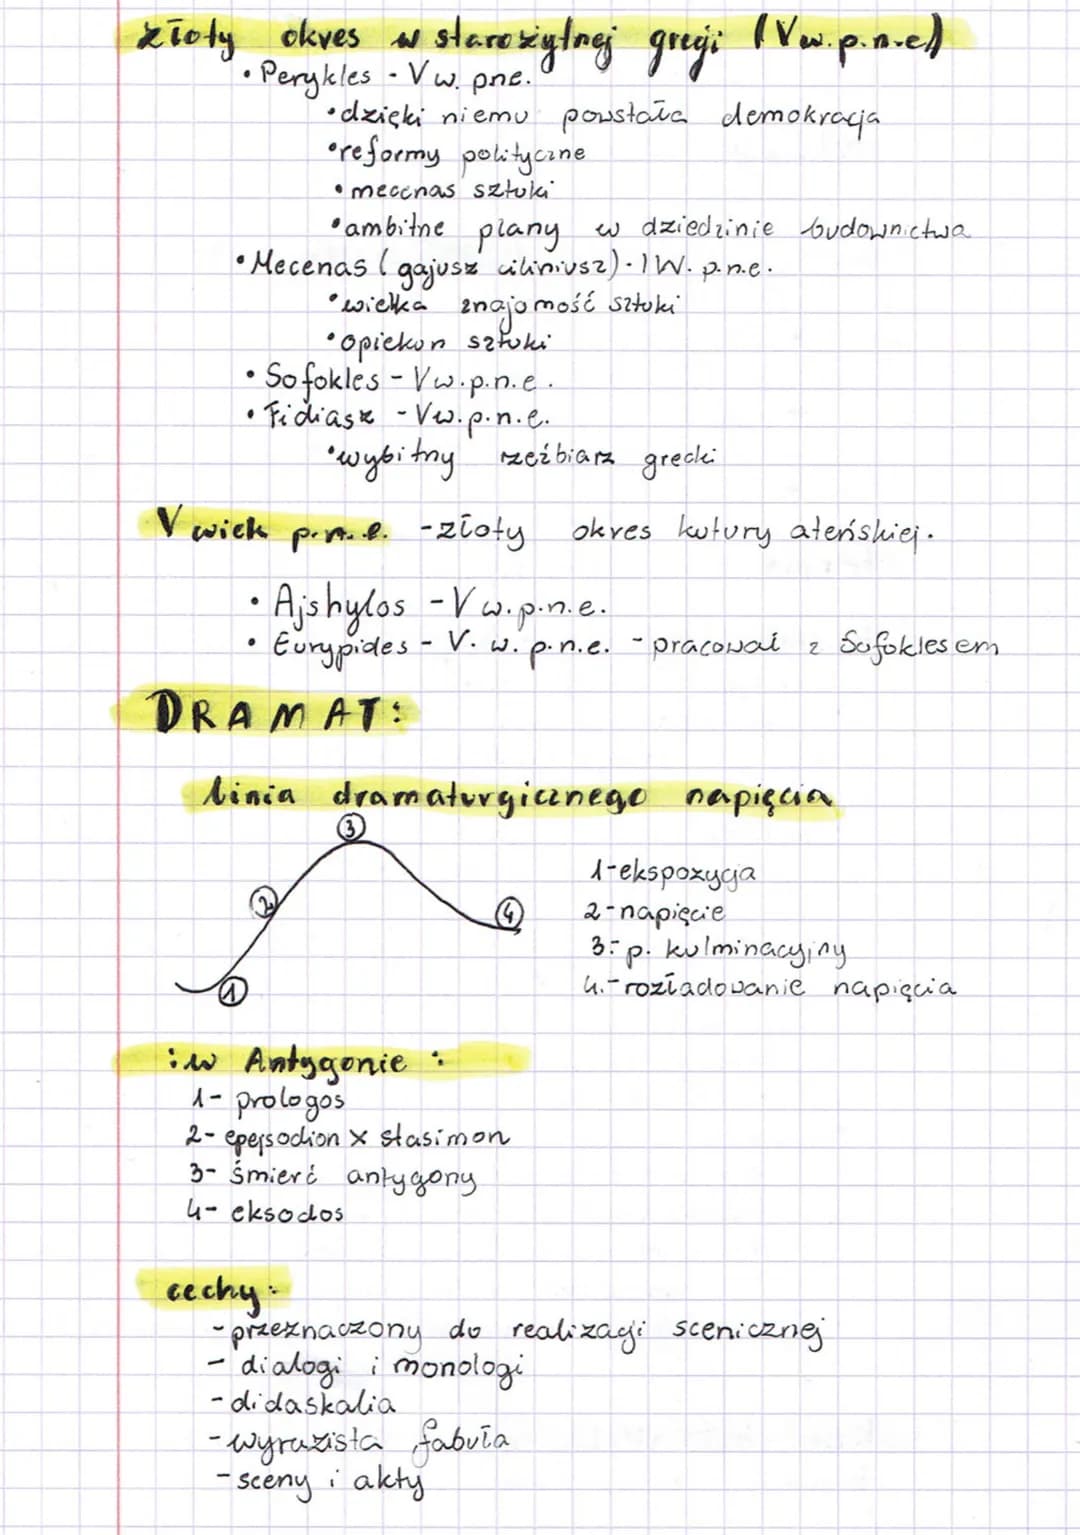 złoty okres w starożytnej gregi (Vw.p.n.e)
• Perykles - Vw. pne.
• dzięki niemu powstała demokracja
• reformy polityczne
• mecenas sztuki
• ambitne plany w dziedzinie budownictwa
• Mecenas (gajusz ciliniusz) - I W. p.n.e.
• wielka znajomość sztuki
• opiekun sztuki
• Sofokles - Vw.p.n.e.
• Fidiasz - Vw.p.n.e.
• wybitny rzeźbiarz grecki
V wiek p.n.e. - złoty okres kutury ateńskiej.
• Ajshylos - Vw.p.n.e.
• Eurypides - V. w. p.n.e. - pracował z Sofoklesem
DRAMAT:
linia dramaturgicznego napięcia
3
2
4
1
1-ekspozycja
2-napięcie
3.-p. kulminacyjny
4.-rozładowanie napięcia
: w Antygonie :
1- prologos
2- epejsodion x stasimon
3- śmierć antygony
4- eksodos
cechy:
- przeznaczony do realizacji scenicznej
- dialogi i monologi
- didaskalia
- wyrazista fabuła
- sceny i akty